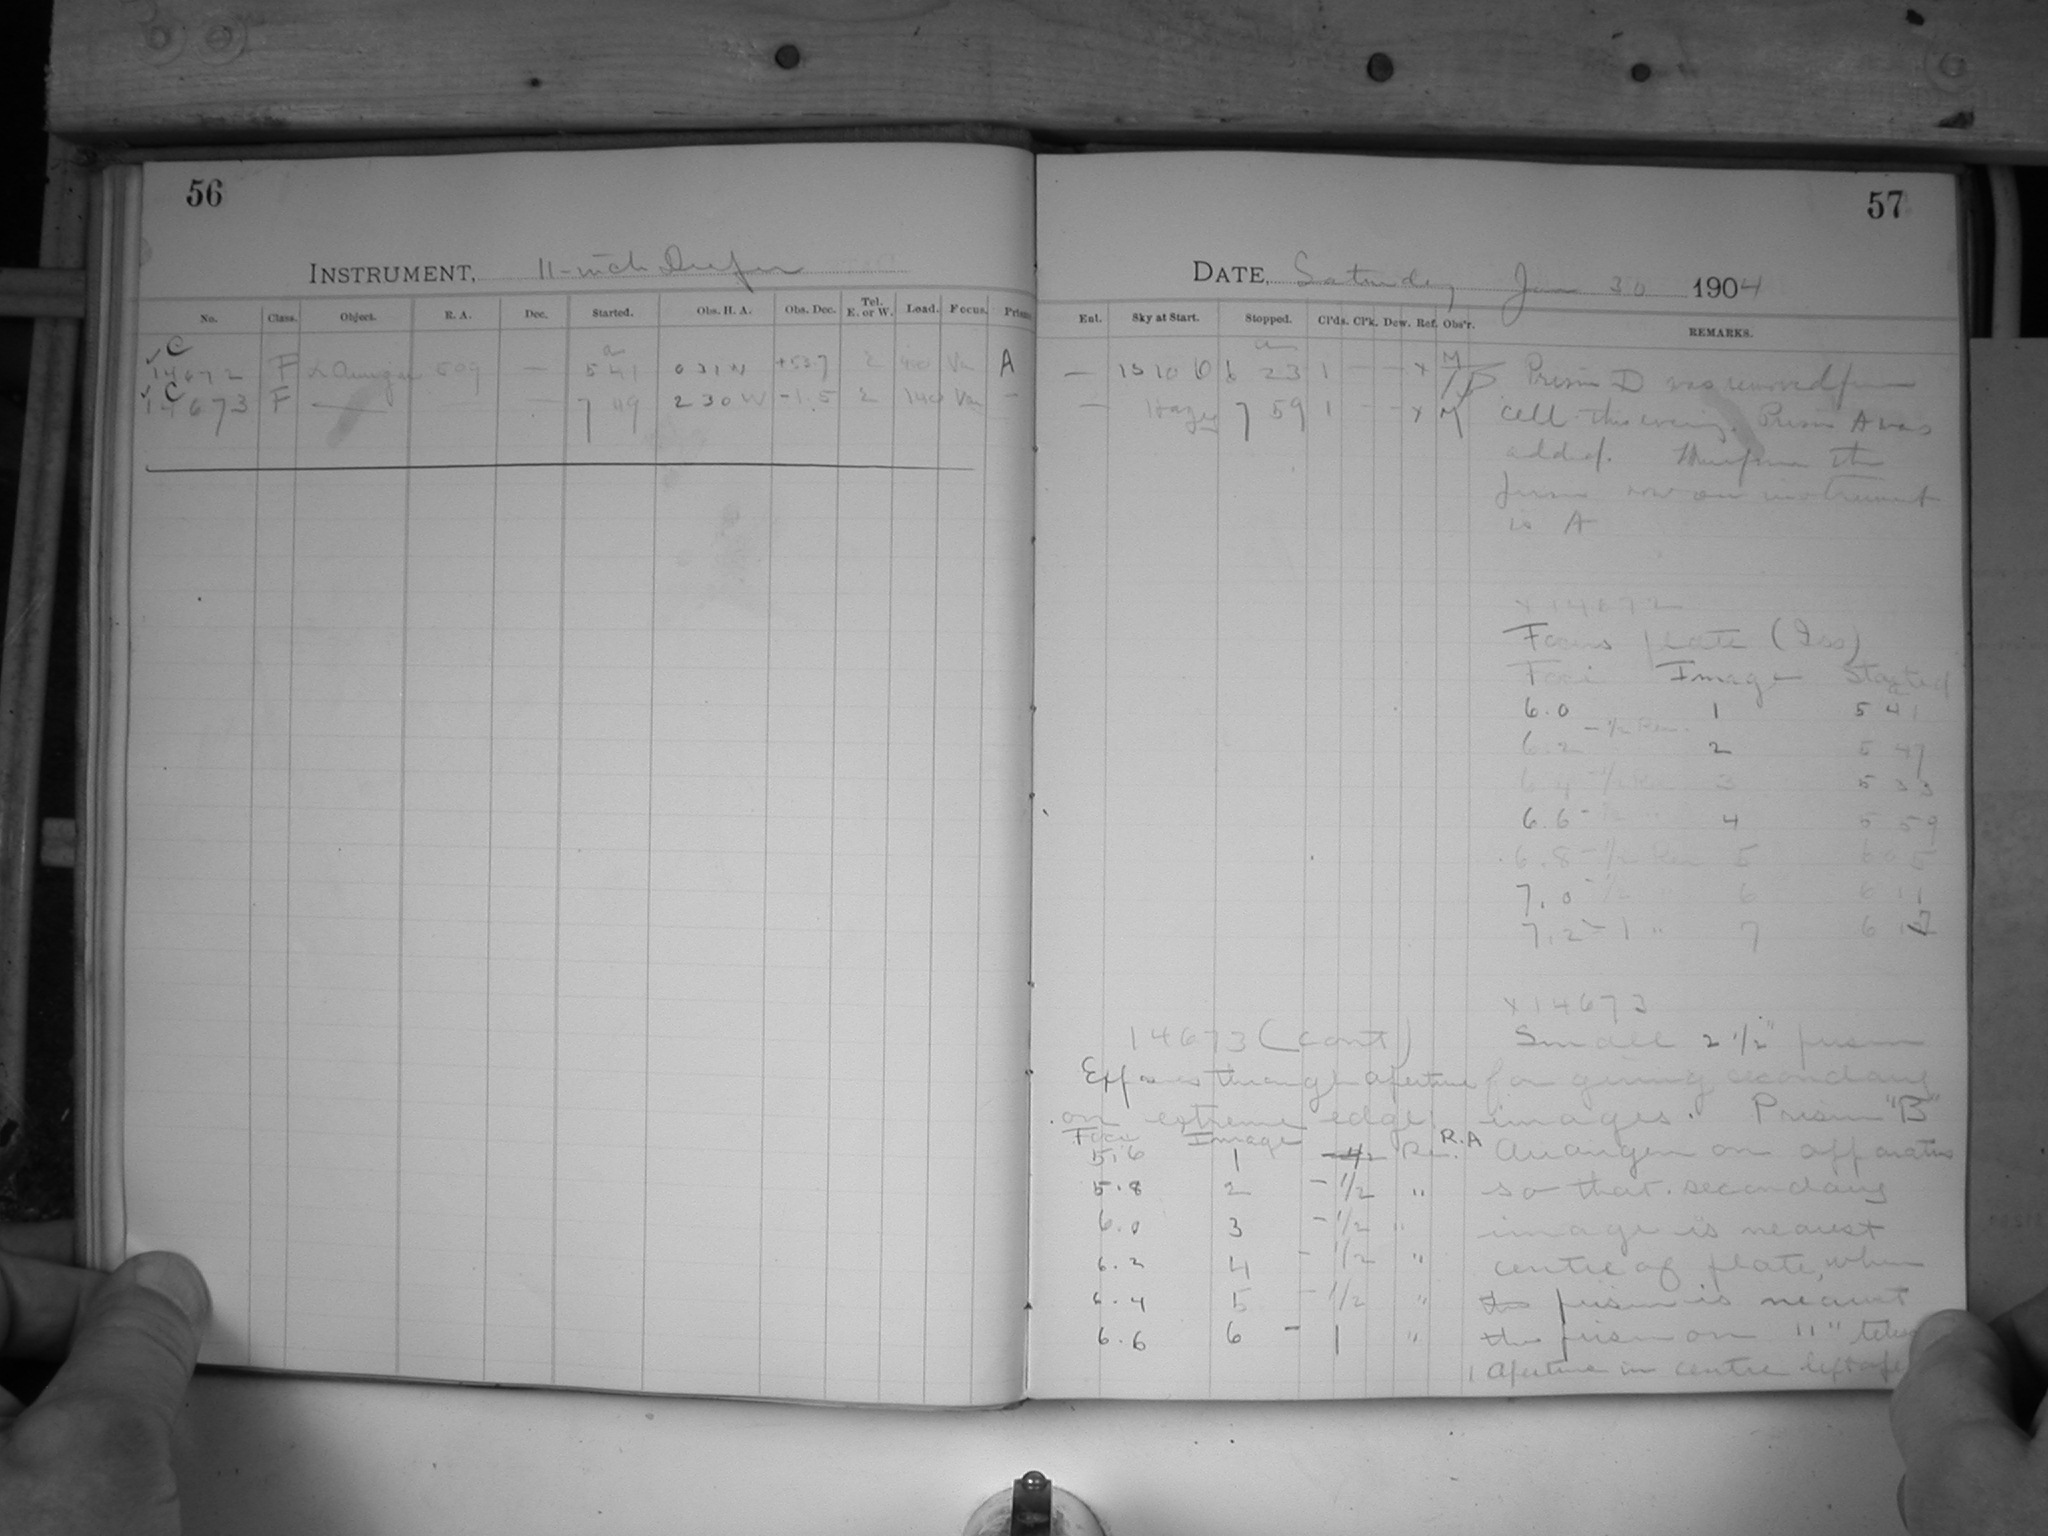 56
INSTRUMENT, 11-inch Draper
No. Class. Object. R. A. Dec. Started. Obs. H. A. Obs. Dec. Tel. E. or W. Load. Focus. Prism
C
14672 F α Aurigae 509 — 5 41 0 31 W +53.7 E 400 Var A
C
14673 F — — 7 49 2 30 W -1.5 E 140 Var —
57
DATE, Saturday Jan 30 1904
Ent. Sky at Start. Stopped. Cl'ds. Cl'k. Dew. Ref. Obs'r. REMARKS.
— 15 10 0 6 23 1 - - x M
— Hazy 7 59 1 - - x M
Prism D was removed from
cell this evening. Prism A was
added. Therefore the
prism now on instrument
is A
x 14672
Focus plate (Iso)
Foci Image Started
6.0 1 5 41
- 1/2 Rev.
6.2 2 5 47
6.4 - 1/2 Rev 3 5 53
6.6 - 1/2 " 4 5 59
6.8 - 1/2 Rev 5 6 05
7.0 - 1/2 " 6 6 11
7.2 - 1 " 7 6 17
x 14673
Small 2 1/2" prism
for giving secondary
images. Prism "B"
Arranged on apparatus
so that secondary
image is nearest
centre of plate, when
prism is nearest
the prism on 11"
Aperture in centre left
14673 (cont)
Exposures through aperture
on extreme edge.
Foci Image
5.6 1 - 1/2 Rev. R.A
5.8 2 - 1/2 "
6.0 3 - 1/2 "
6.2 4 - 1/2 "
6.4 5 - 1/2 "
6.6 6 - 1 "